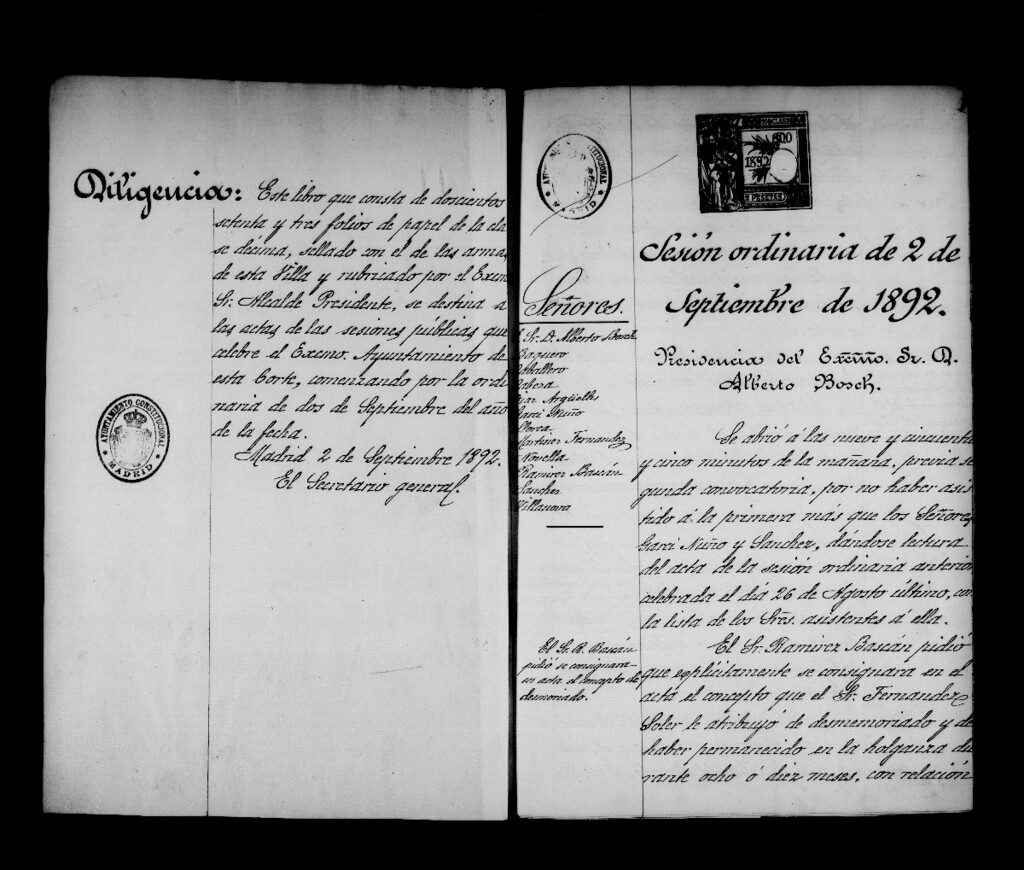 Diligencia: Este libro que consta de doscientos
setenta y tres folios de papel de la cla
se décima, sellado con el de las armas
de esta Villa y rubricado por el Excmo
Sr. Alcalde Presidente, se destina á
las actas de las sesiones públicas que
celebre el Excmo. Ayuntamiento de
esta Corte, comenzando por la ordi
naria de dos de Septiembre del año
de la fecha.
Madrid 2 de Septiembre 1892.
El Secretario general.
AYUNTAMIENTO CONSTITUCIONAL
MADRID
1892
PESETAS
Sesión ordinaria de 2 de
Septiembre de 1892.
Presidencia del Excmo. Sr. D.
Alberto Bosch.
Señores.
Sr. D. Alberto Bosch
Baquero
Caballero
Cabeza
Diaz Argüelles
Garci Nuño
Llorca
Martinez Fernandez
Novella
Ramirez Bascán
Sanchez
Villanova
Se abrió á las nueve y cincuenta
y cinco minutos de la mañana, previa se
gunda convocatoria, por no haber asis
tido á la primera más que los Señores
Garci Nuño y Sanchez, dándose lectura
del acta de la sesión ordinaria anterior
celebrada el dia 26 de Agosto último, con
la lista de los Sres. asistentes á ella.
El Sr. R. Bascán
pidió se consignara
en acta el concepto de
desmemoriado.
El Sr. Ramirez Bascán pidió
que explicitamente se consignara en el
acta el concepto que el Sr. Fernandez
Soler le atribuyó de desmemoriado y de
haber permanecido en la holganza du
rante ocho ó diez meses, con relación